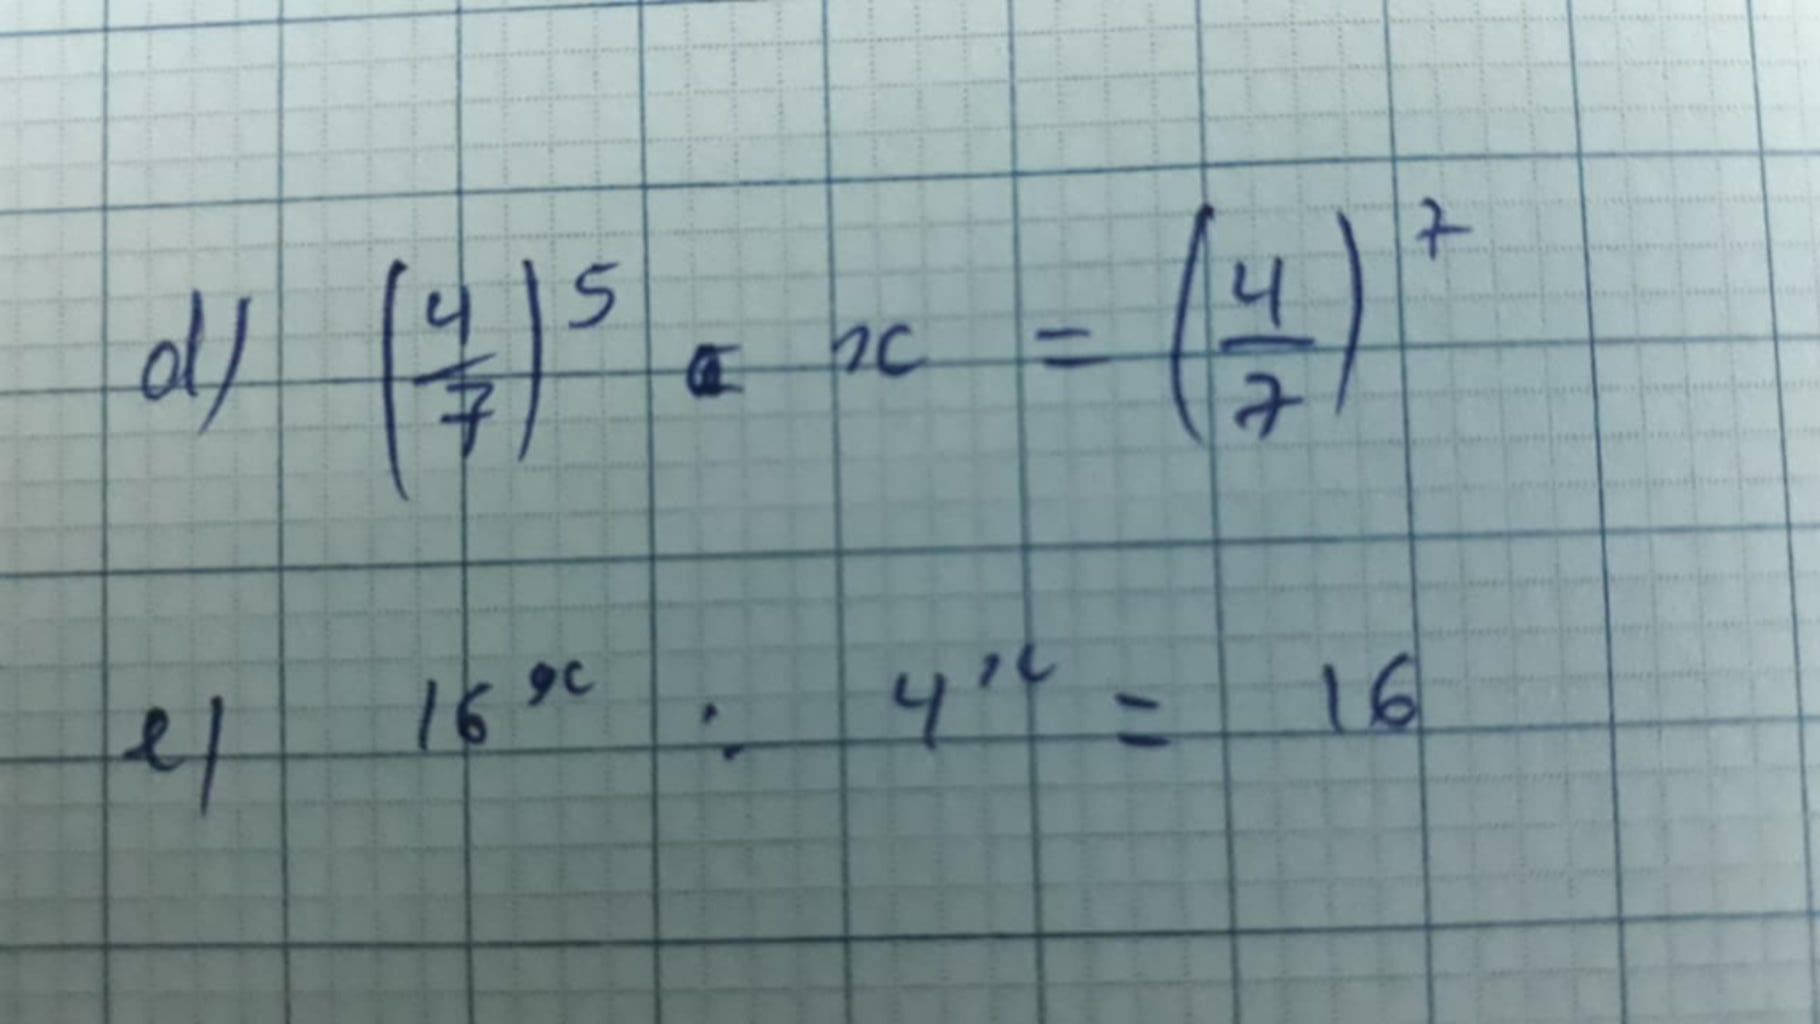 d) (4/7)^5 . x = (4/7)^7
e) 16^x : 4^x = 16